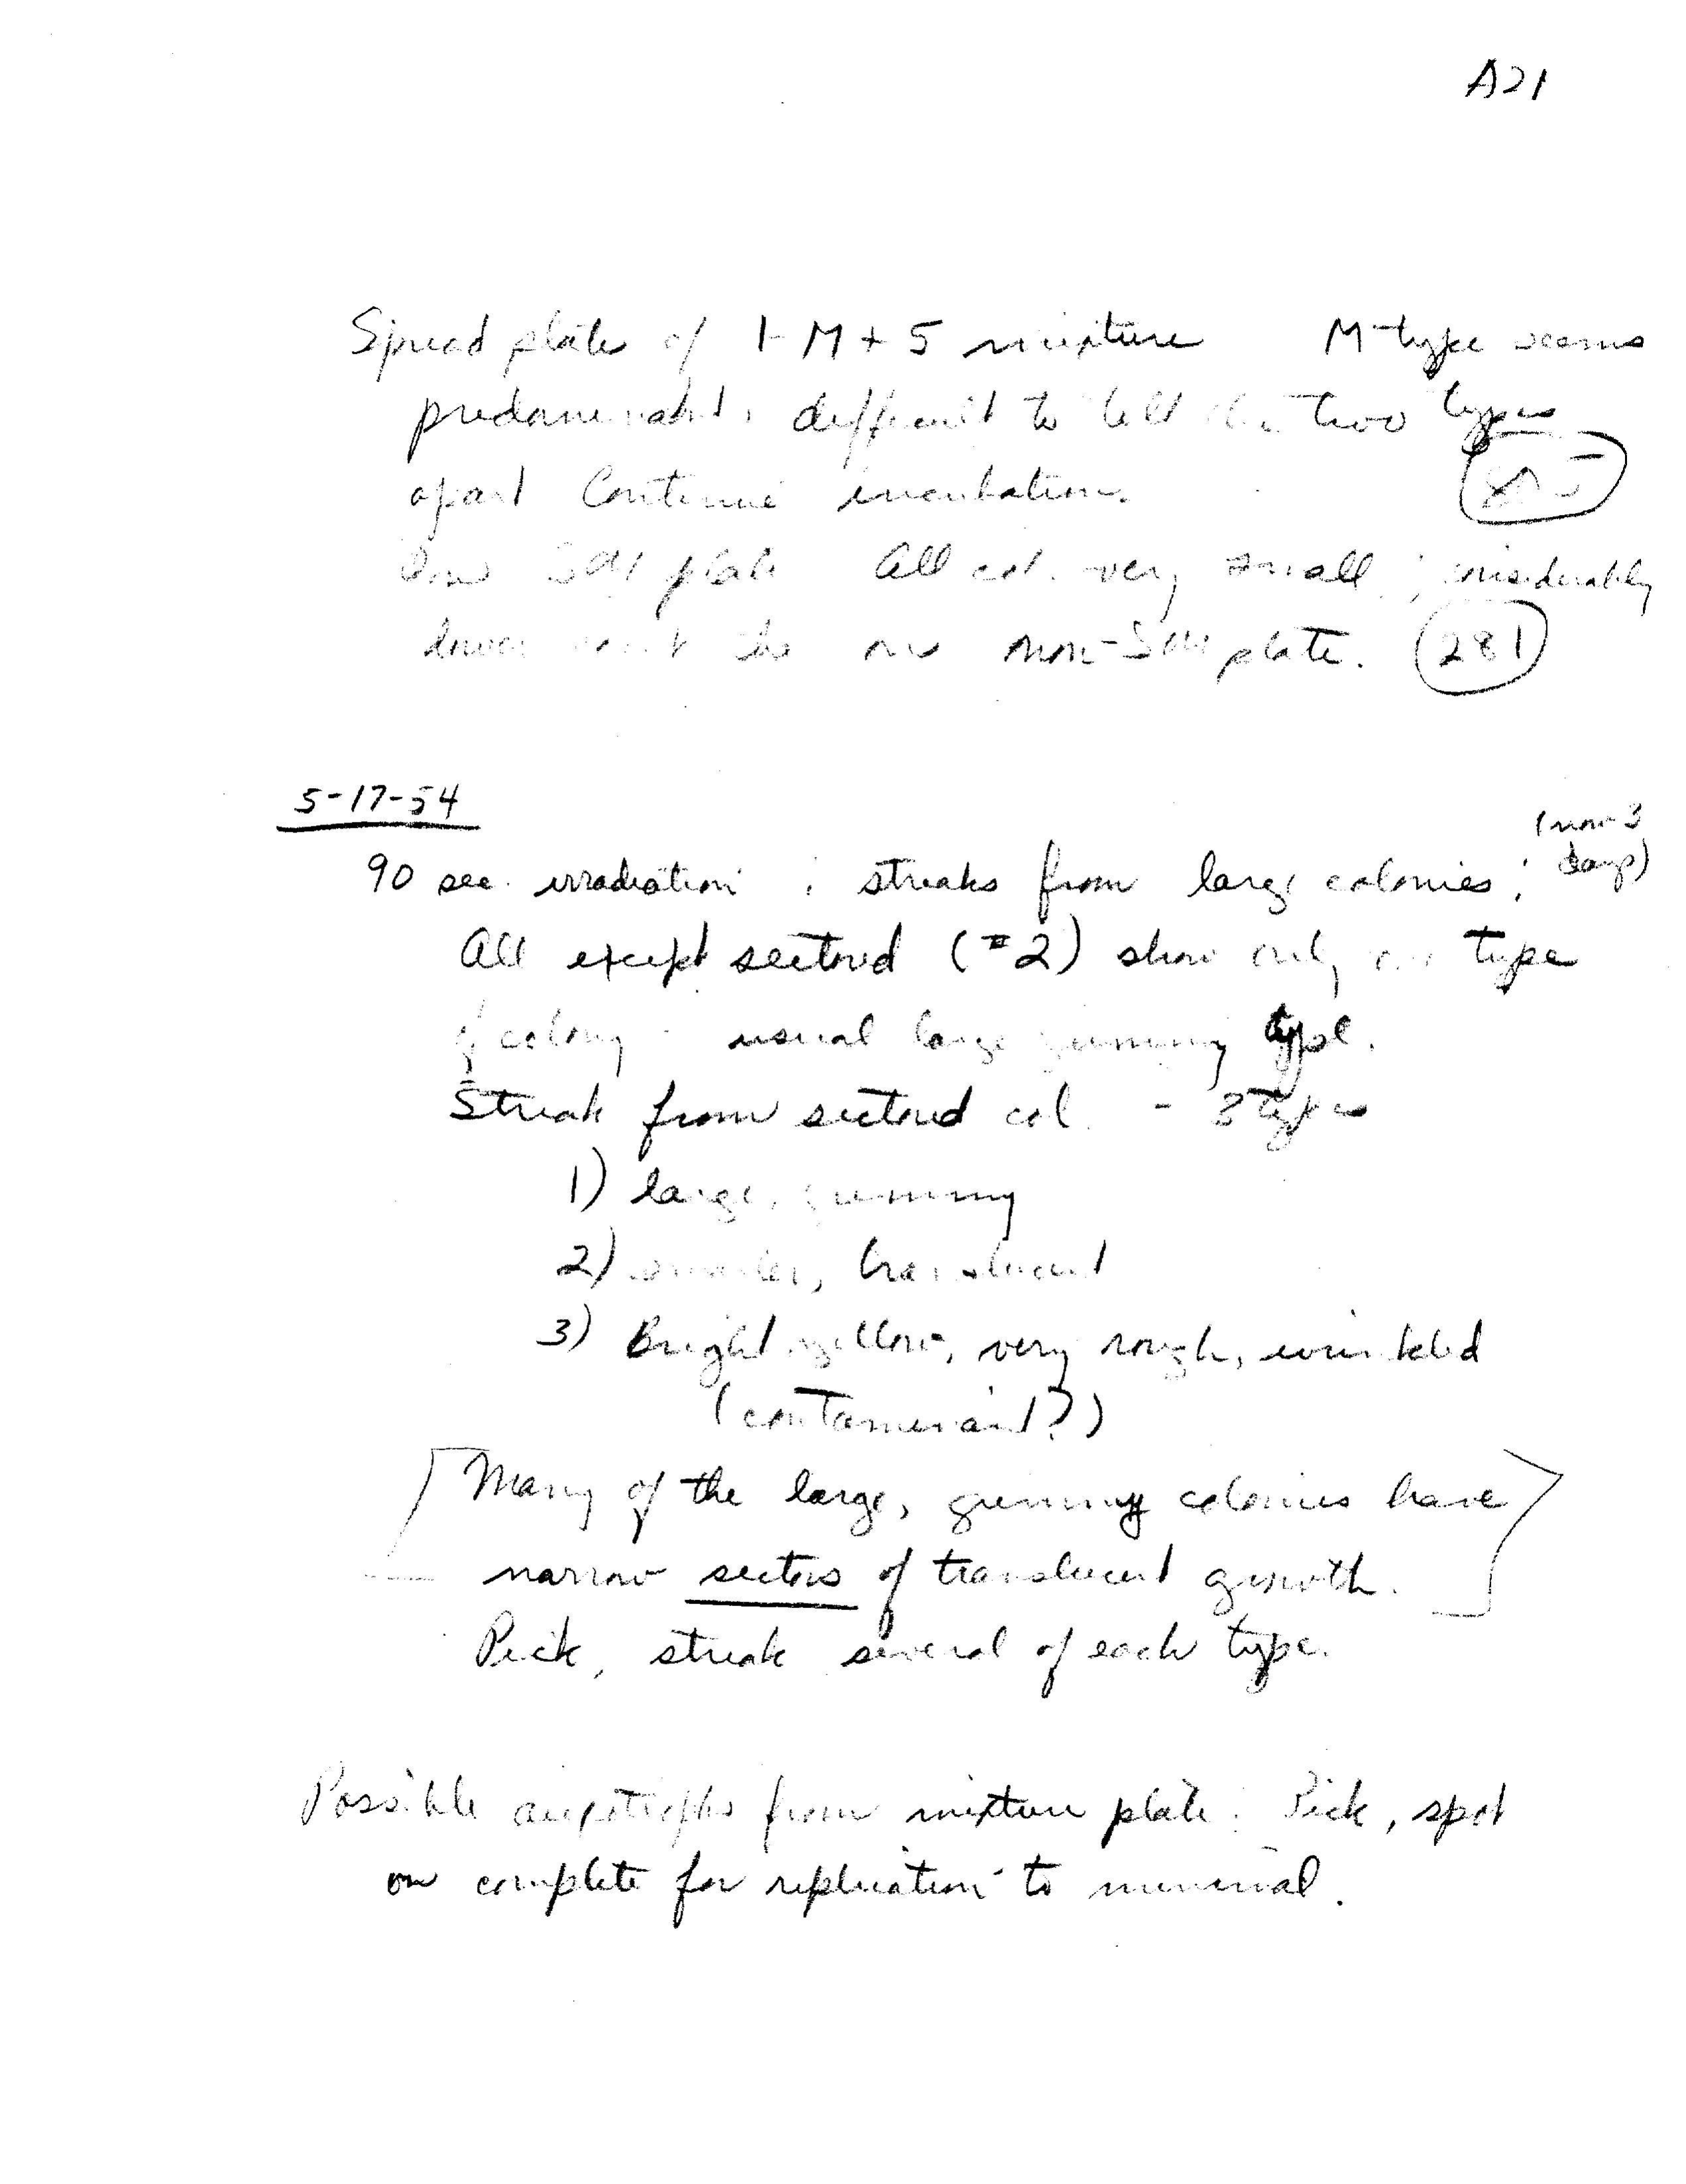 A21
Spread plate of 1-M + 5 mixture M-type seems
predominant, difficult to tell the two types
apart Continue incubation.
plate All col. very small; considerably
non- plate. 281
5-17-54
(now 3
days)
90 sec. irradiation: streaks from large colonies;
All except sectored (#2) show only one type
of colony - usual large gummy type.
Streak from sectored col. - 3 types
1) large, gummy
2) smaller, translucent
3) Bright yellow, very rough, wrinkled
(contaminant?)
Many of the large, gummy colonies have
narrow sectors of translucent growth.
Pick, streak several of each type.
Possible auxotrophs from mixture plate: Pick, spot
on complete for replication to minimal.